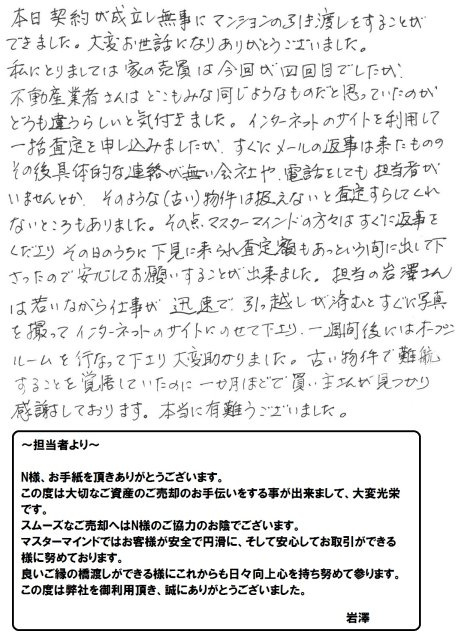 本日契約が成立し無事にマンションの引き渡しをすることが
できました。大変お世話になりありがとうございました。
私にとりましては家の売買は今回が四回目でしたが、
不動産業者さんはどこもみな同じようなものだと思っていたのが
どうも違うらしいと気付きました。インターネットのサイトを利用して
一括査定を申し込みましたが、すぐにメールの返事は来たものの
その後具体的な連絡が無い会社や、電話をしても担当者が
いませんとか、そのような(古い)物件は扱えないと査定すらしてくれ
ないところもありました。その点マスターマインドの方々はすぐに返事を
くださりその日のうちに下見に来られ査定額もあっという間に出して下
さったので安心してお願いすることが出来ました。担当の岩澤さん
は若いながら仕事が迅速で、引っ越しが済むとすぐに写真
を撮ってインターネットのサイトにのせて下さり、一週間後にはオープン
ルームを行なって下さり大変助かりました。古い物件で難航
することを覚悟していたのに一か月ほどで買い主さんが見つかり
感謝しております。本当に有難うございました。
～担当者より～
N様、お手紙を頂きありがとうございます。
この度は大切なご資産のご売却のお手伝いをする事が出来まして、大変光栄
です。
スムーズなご売却へはN様のご協力のお陰でございます。
マスターマインドではお客様が安全で円滑に、そして安心してお取引ができる
様に努めております。
良いご縁の橋渡しができる様にこれからも日々向上心を持ち努めて参ります。
この度は弊社を御利用頂き、誠にありがとうございました。
岩澤